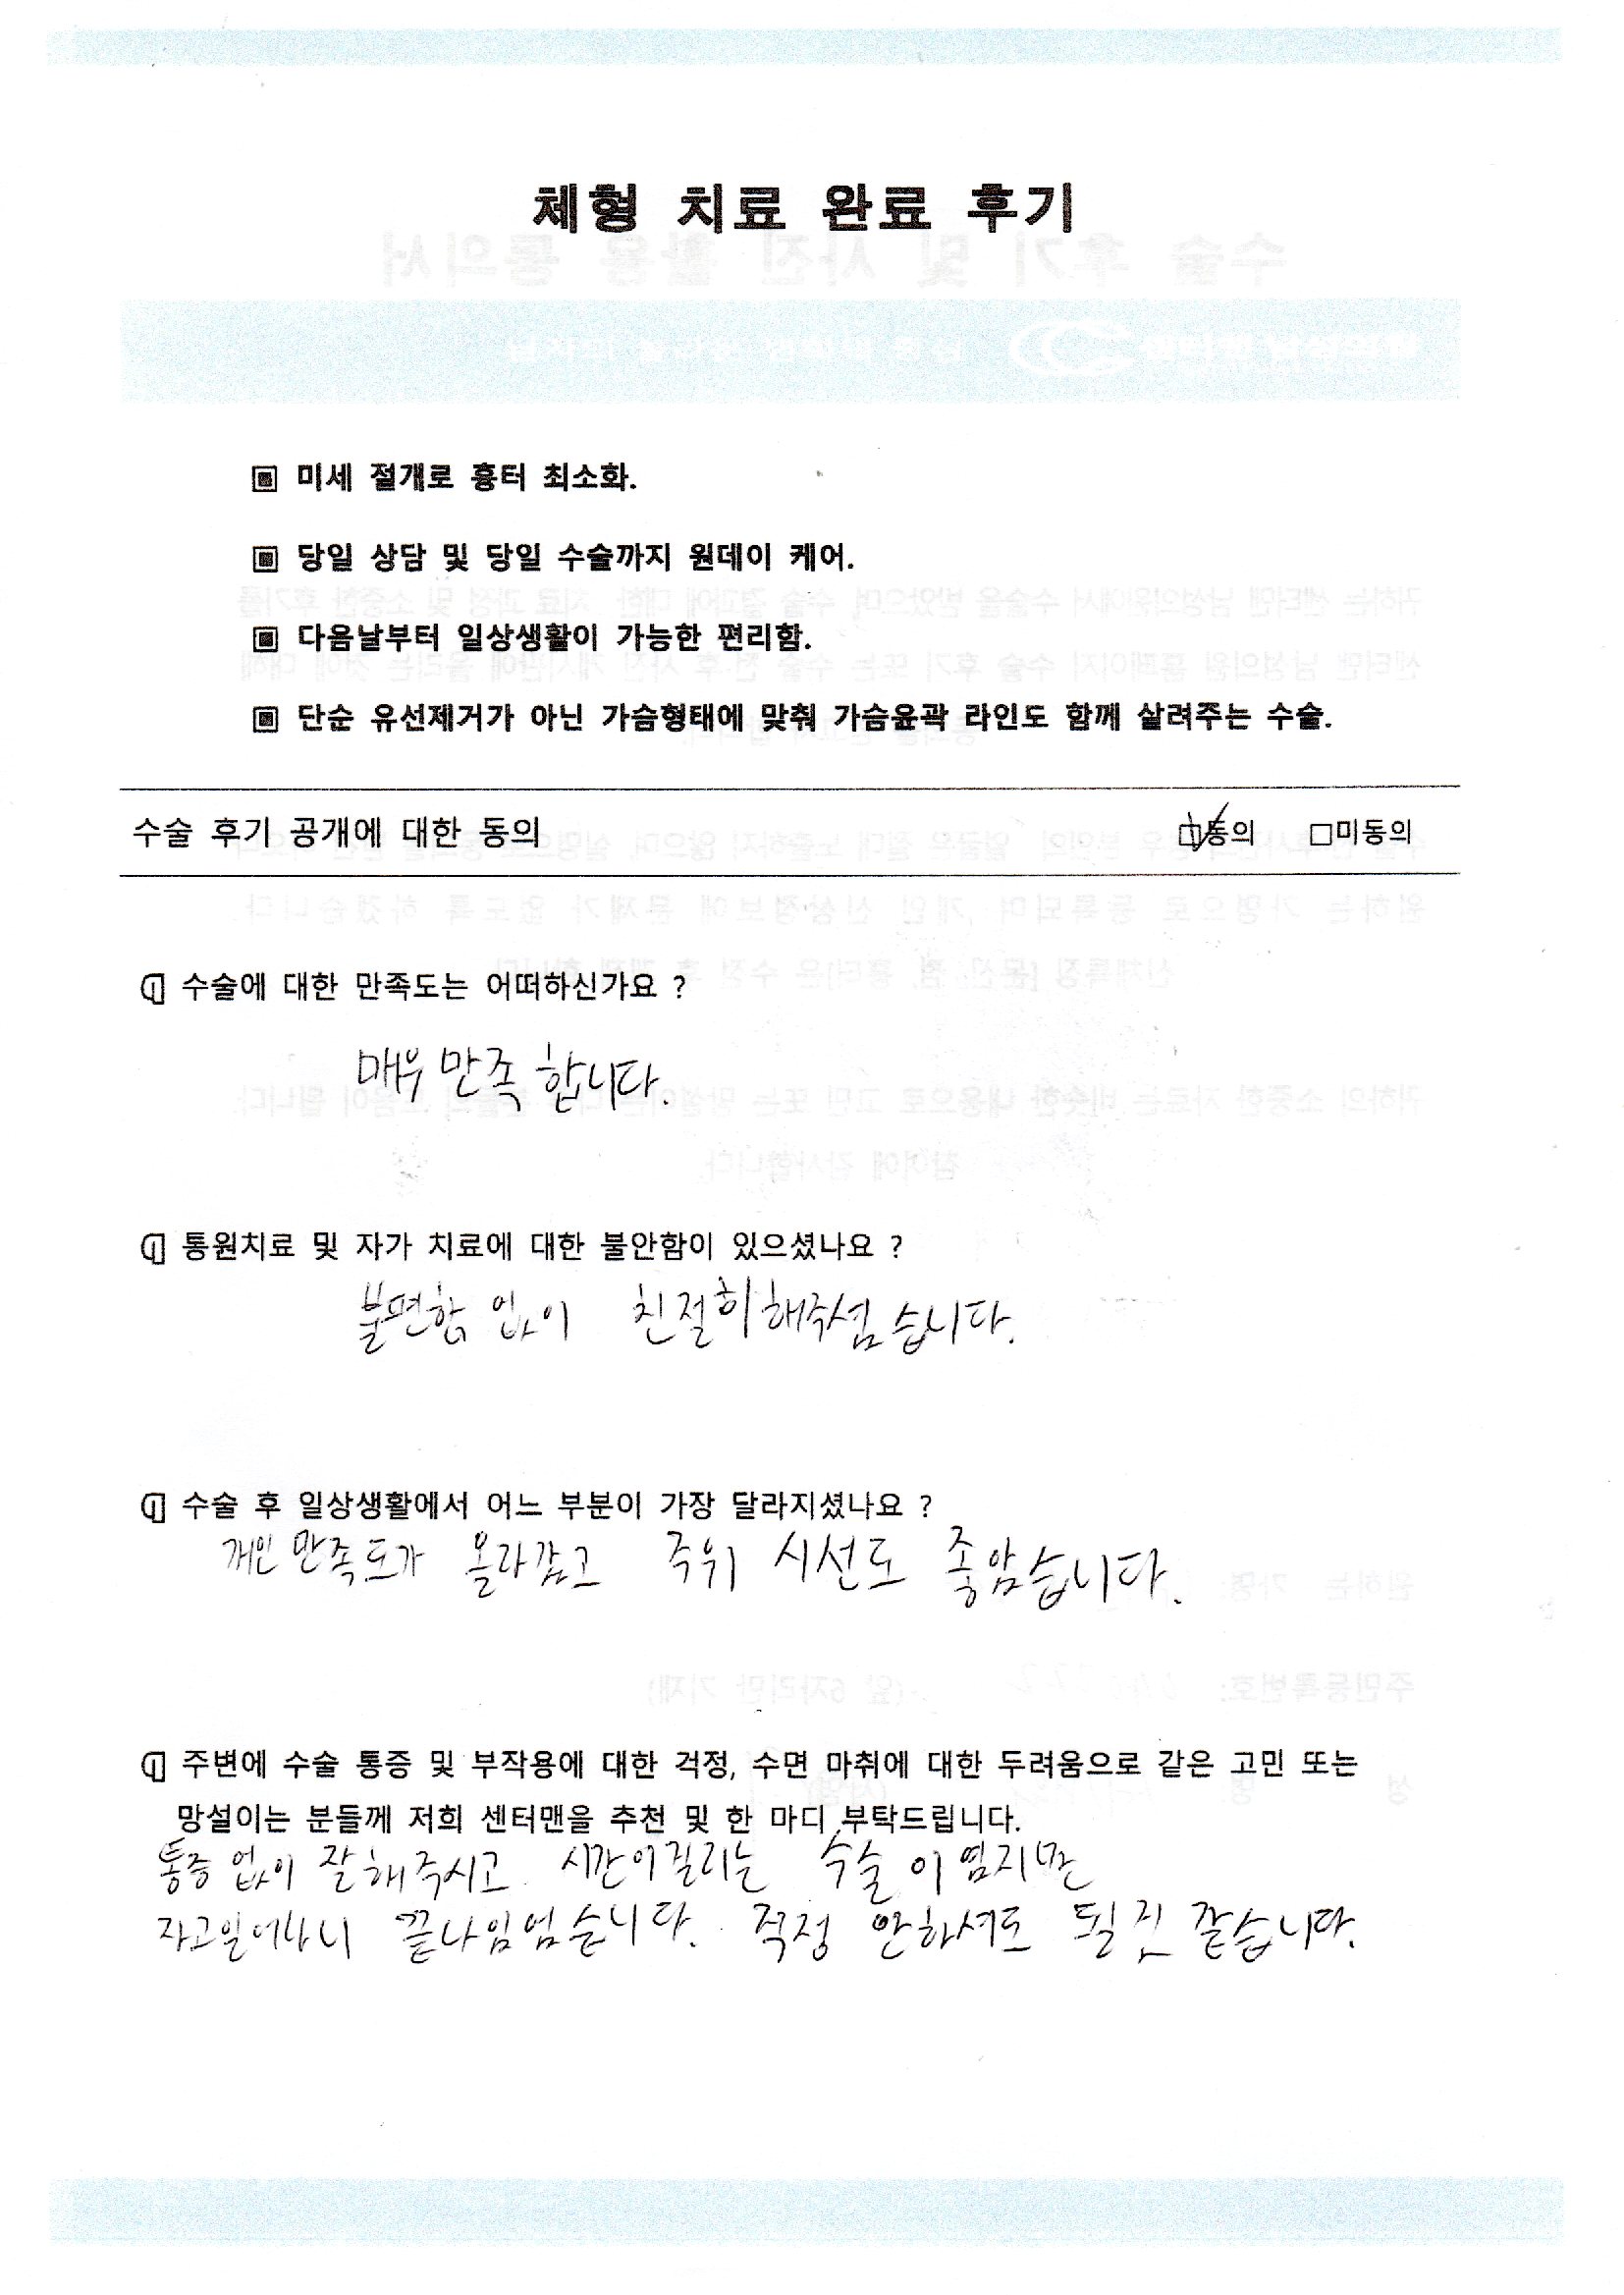 체형 치료 완료 후기
▣ 미세 절개로 흉터 최소화.
▣ 당일 상담 및 당일 수술까지 원데이 케어.
▣ 다음날부터 일상생활이 가능한 편리함.
▣ 단순 유선제거가 아닌 가슴형태에 맞춰 가슴윤곽 라인도 함께 살려주는 수술.
수술 후기 공개에 대한 동의 ☑동의 □미동의
수술에 대한 만족도는 어떠하신가요 ?
매우 만족 합니다.
통원치료 및 자가 치료에 대한 불안함이 있으셨나요 ?
불편함 없이 친절히해주셨습니다.
수술 후 일상생활에서 어느 부분이 가장 달라지셨나요 ?
개인 만족도가 올라갔고 주위 시선도 좋았습니다.
주변에 수술 통증 및 부작용에 대한 걱정, 수면 마취에 대한 두려움으로 같은 고민 또는
망설이는 분들께 저희 센터맨을 추천 및 한 마디 부탁드립니다.
통증 없이 잘해주시고 시간이걸리는 수술이였지만
자고일어나니 습니다. 걱정 안하셔도 될것 같습니다.